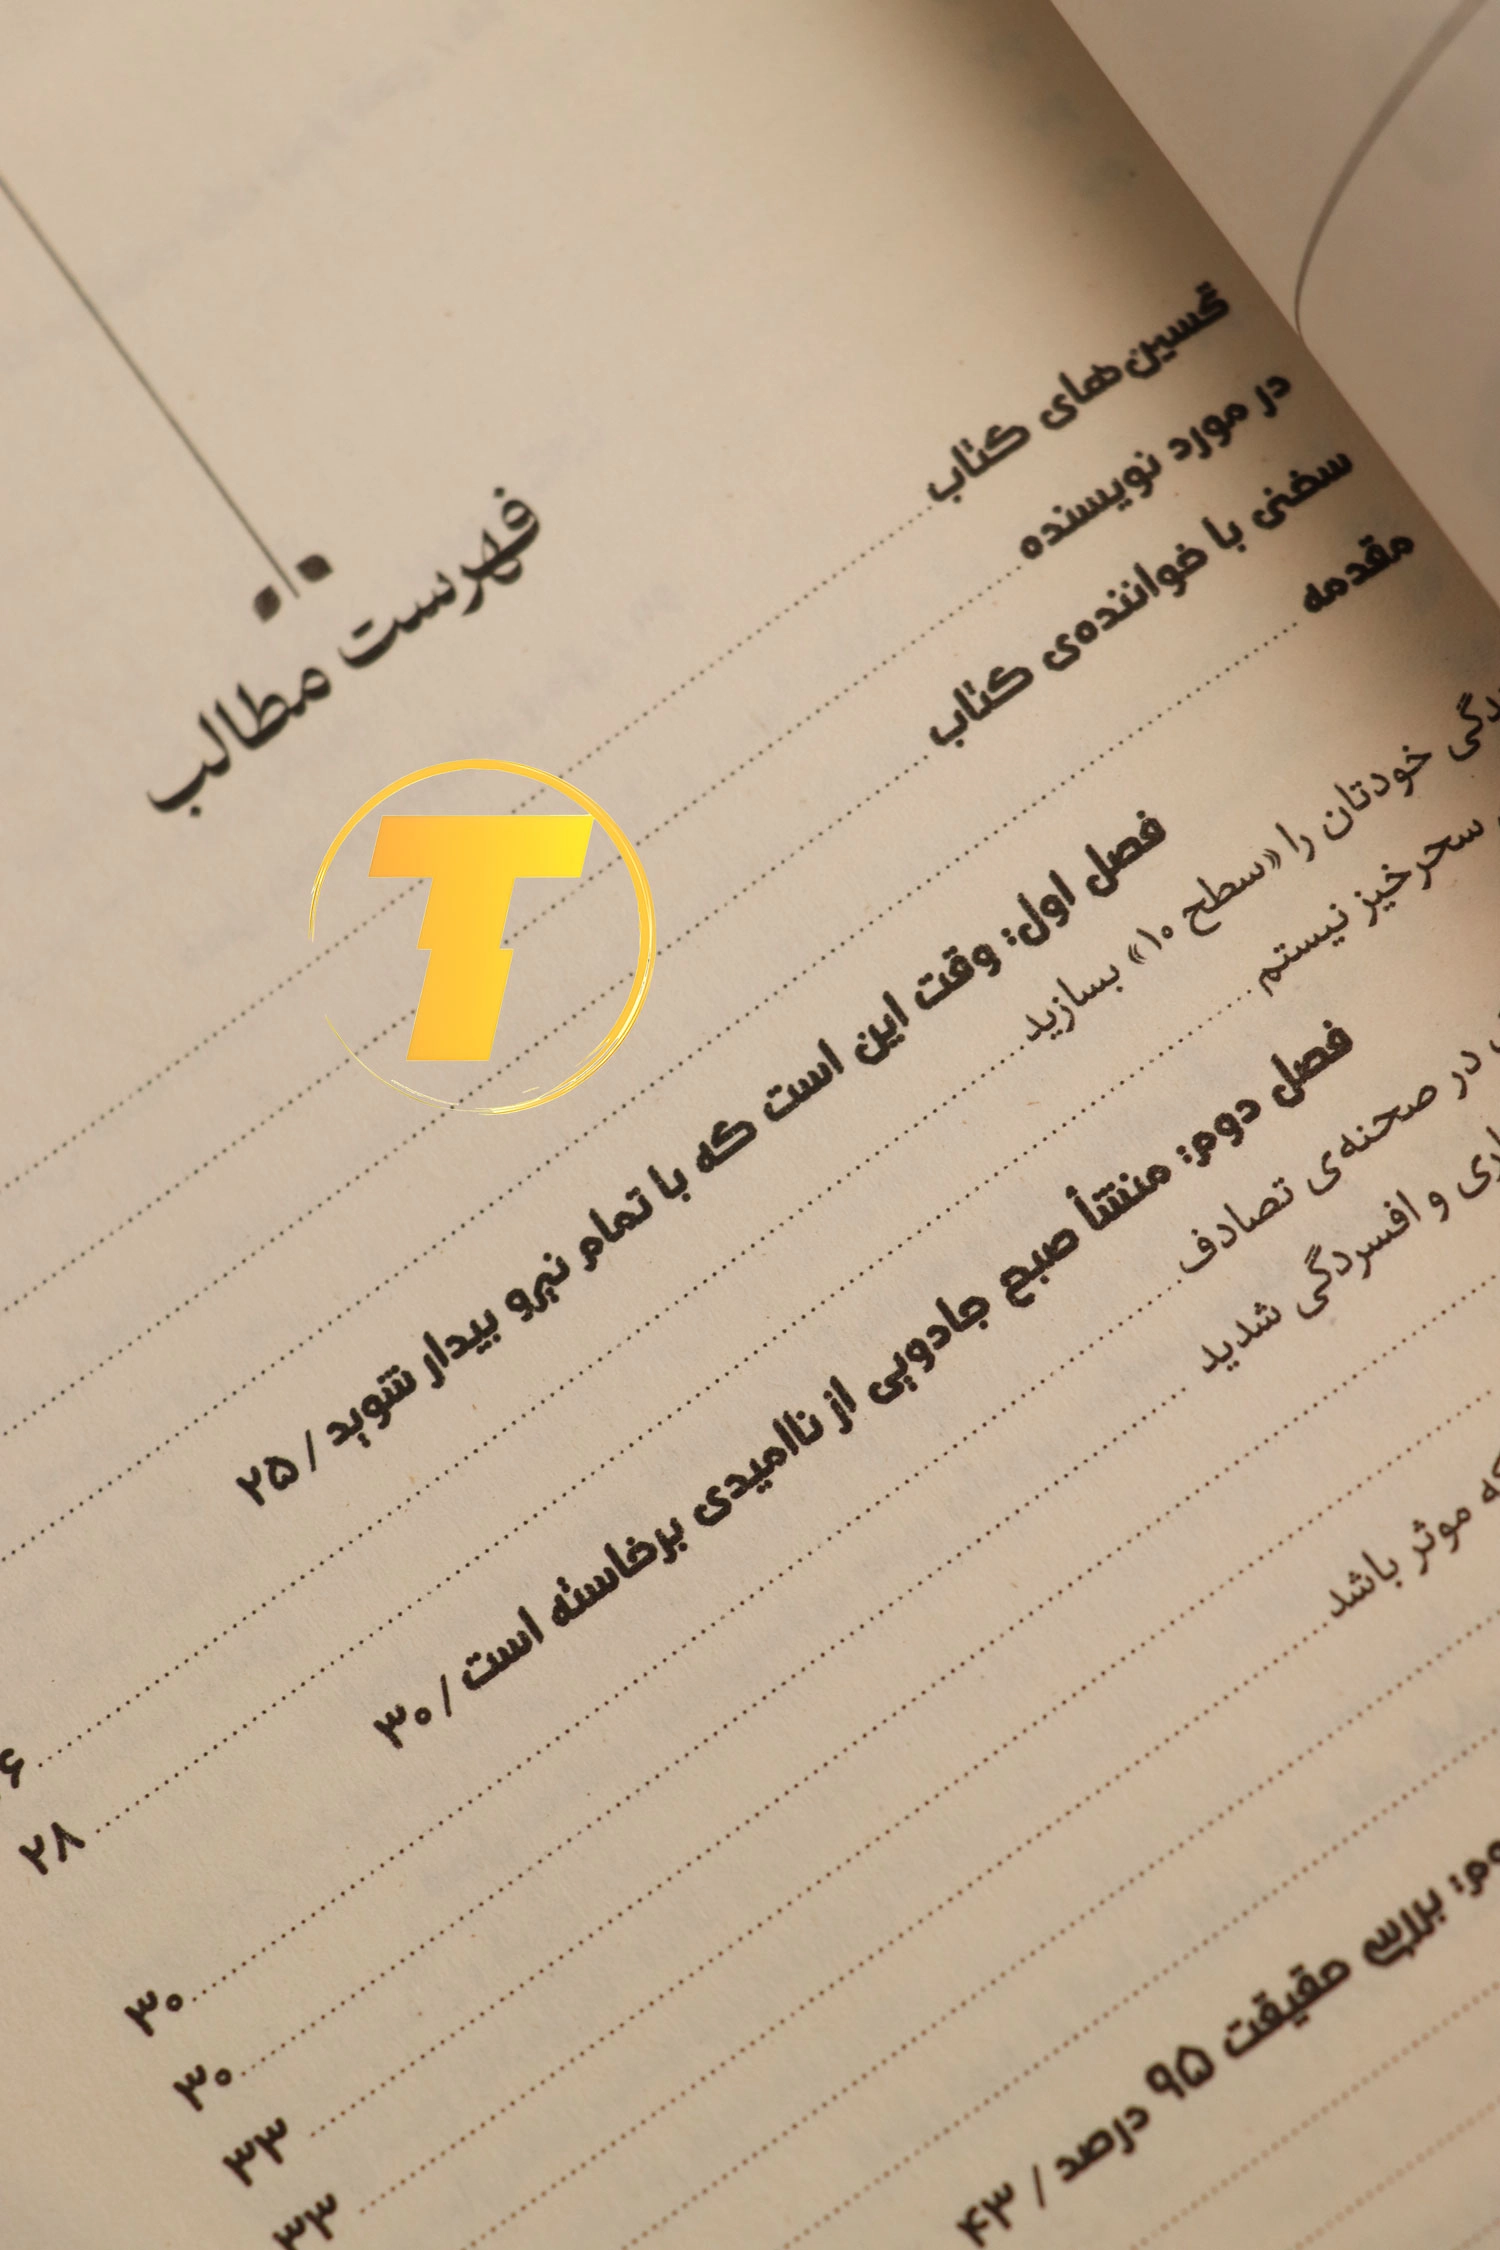 فهرست مطالب
تحسین‌های کتاب
در مورد نویسنده
سخنی با خواننده‌ی کتاب
مقدمه
فصل اول: وقت این است که با تمام نیرو بیدار شوید / ۲۵
خودتان را «سطح ۱۰» بسازید
سحرخیز نیستم ۲۸
فصل دوم: منشأ صبح جادویی از ناامیدی برخاسته است / ۳۰
در صحنه‌ی تصادف ۳۰
و افسردگی شدید ۳۰
۳۳
۳۳
موثر باشد
بررسی حقیقت ۹۵ درصد / ۴۳
T